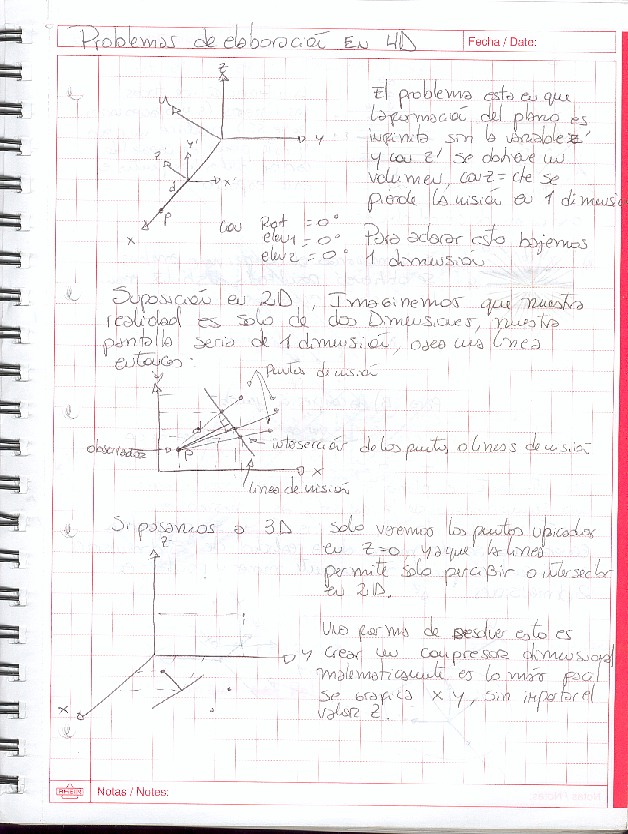 Problemas de elaboración En 4D
Fecha / Date:
Z
U
Y
Z'
Y'
X'
d
P
X
El problema esta en que
la formación del plano es
infinita sin la variable z'
y con z' se obtiene un
volumen, con z = cte se
pierde la visión en 1 dimensión
Con Rot = 0°
elev1 = 0°
elev2 = 0°
Para aclarar esto bajemos
1 dimensión
Suposición en 2D, Imaginemos que nuestra
realidad es solo de dos Dimensiones, nuestra
pantalla seria de 1 dimensión, osea una línea
entonces:
puntos de visión
Y
d
observador
P
intersección de los puntos o líneas de visión
X
línea de visión
Si pasamos a 3D solo veremos los puntos ubicados
en Z=0, ya que la línea
permite solo percibir o intersectar
en 2D.
Z
Y
X
Una forma de resolver esto es
crear un compresor dimensional
matematicamente es lo más facil
se grafica X Y, sin importar el
valor Z.
RHEIN
Notas / Notes: